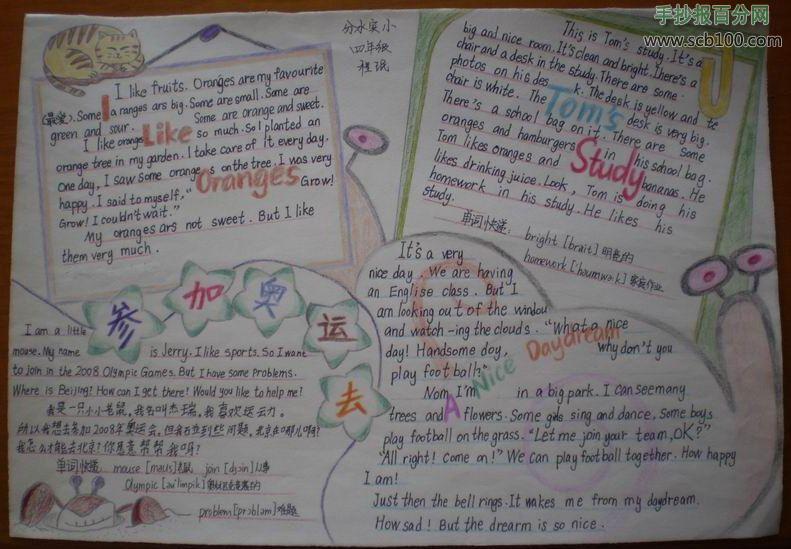 手抄报百分网
www.scb100.com
分水实小
四年级
I like fruits. Oranges are my favourite
(最爱). Some oranges ars big. Some are small. Some are
green and sour. Some are orange and sweet.
I like oranges so much. So I planted an
orange tree in my garden. I take care of it every day.
One day, I saw Some oranges on the tree. I was very
happy. I said to myself, " Grow!
Grow! I couldn't wait."
My oranges ars not sweet. But I like
them very much.
I Like Oranges
This is Tom's study. It's a
big and nice room. It's clean and bright. There's a
chair and a desk in the study. There are some
photos on his desk. The desk is yellow and te
chair is white. The desk is very big.
There's a school bag on it. There are some
oranges and hamburgers in his school bag.
Tom likes oranges and bananas. He
likes drinking juice. Look, Tom is doing his
homework in his study. He likes his
study.
Tom's Study
单词快递: bright [brait] 明亮的
homework [houmwə:k] 家庭作业
参加奥运去
I am a little
mouse. My name is Jerry. I like sports. So I want
to join in the 2008 Olympic Games. But I have some problems.
Where is Beijing? How can I get there? Would you like to help me?
我是一只小小老鼠,我名叫杰瑞。我喜欢运动。
所以我想去参加2008年奥运会。但我有些问题。北京在哪儿啊?
我怎么才能去北京?你愿意帮帮我吗?
单词快递: mouse [maus] 鼠 join [dʒɔin] 从事
Olympic [əu'limpik] 奥林匹克竞赛的
problem [prɔbləm] 难题
It's a very
nice day. We are having
an Englise class. But I
am looking out of the windou
and watch-ing the clouds. "What a nice
day! Handsome doy, why don't you
play football?"
A Nice Daydream
Nom I'm in a big park. I can see many
trees and flowers. Some girls sing and dance. Some boys
play football on the grass. "Let me join your team, OK?"
"All right! Come on!" We can play football together. How happy
I am!
Just then the bell rings. It wakes me from my daydream.
How sad! But the drearm is so nice.